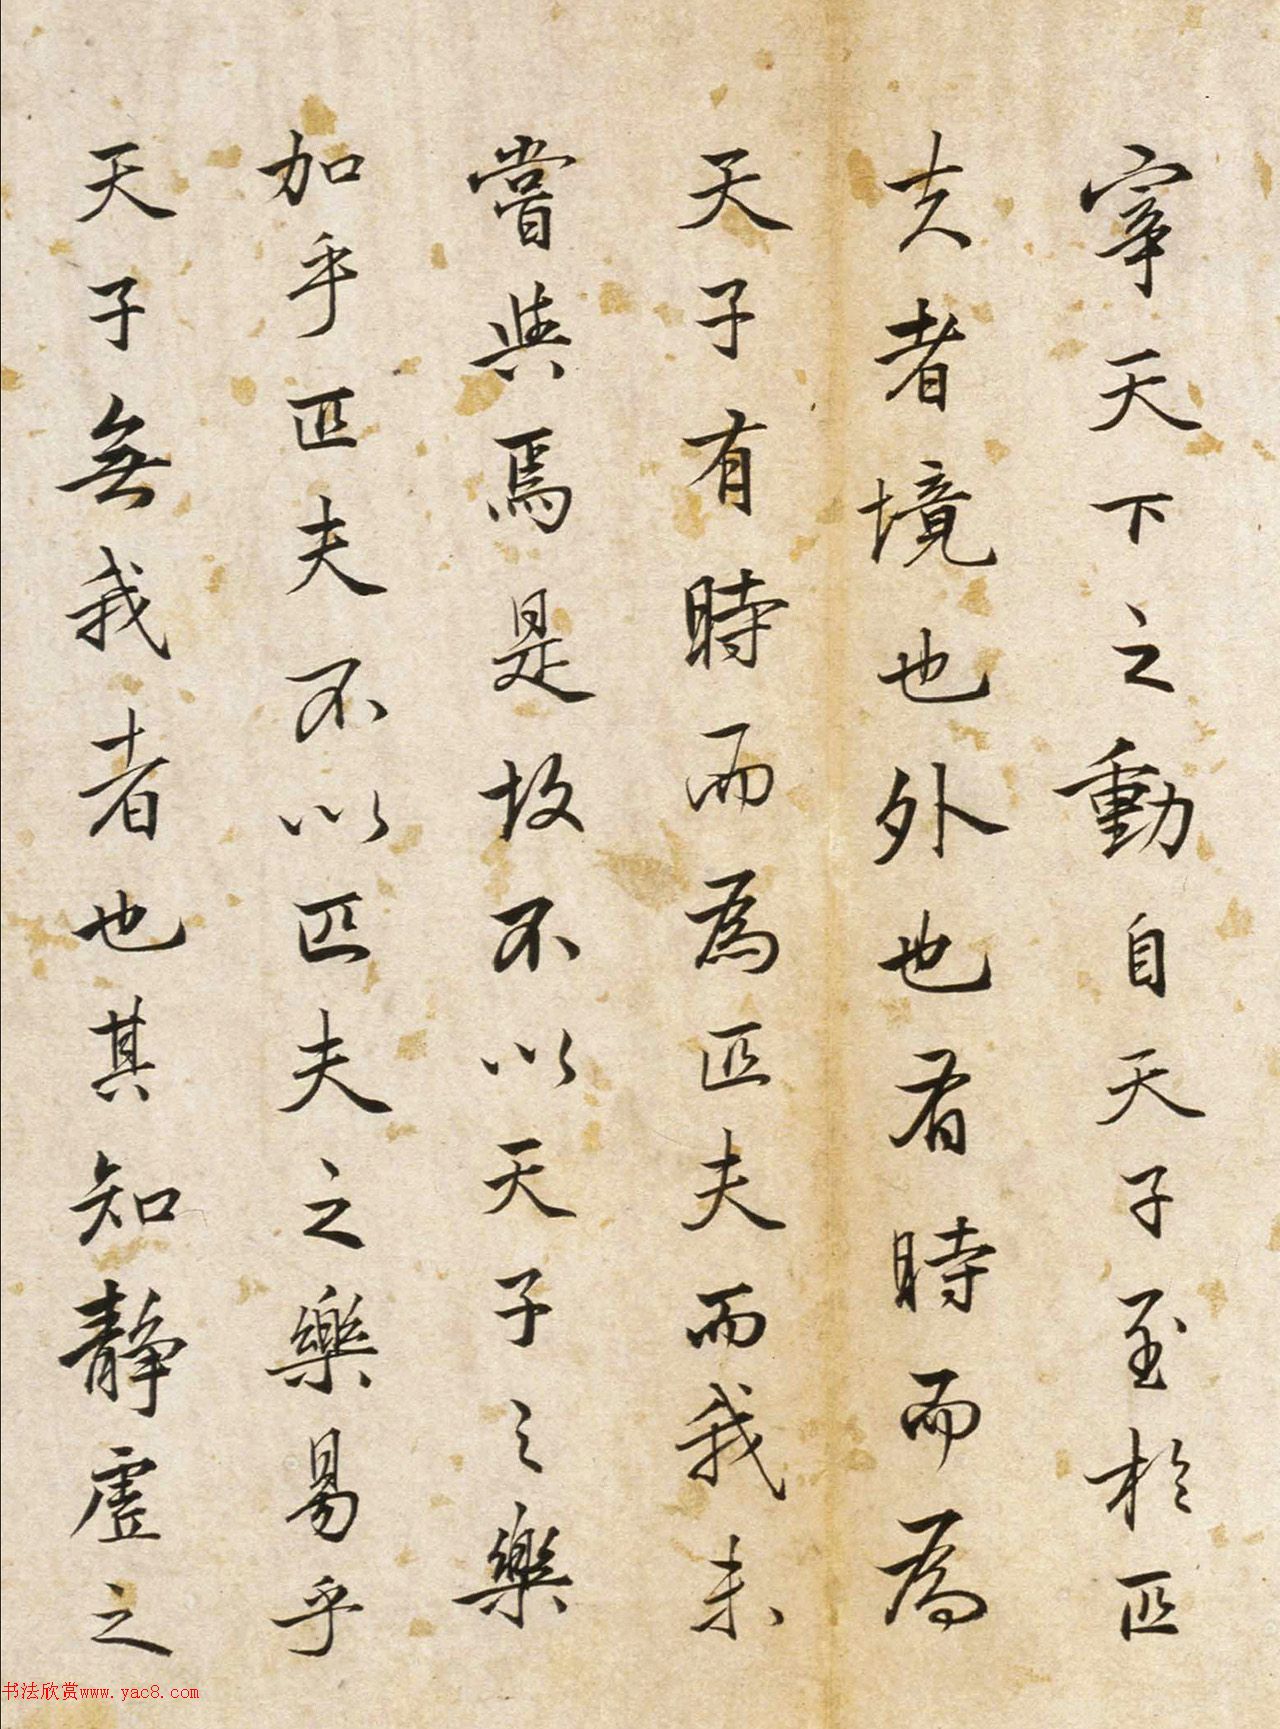 宰天下之動自天子至於匹
夫者境也外也有時而為
天子有時而為匹夫而我未
嘗與焉是故不以天子之樂
加乎匹夫不以匹夫之樂易乎
天子無我者也其知靜虛之
书法欣赏www.yac8.com